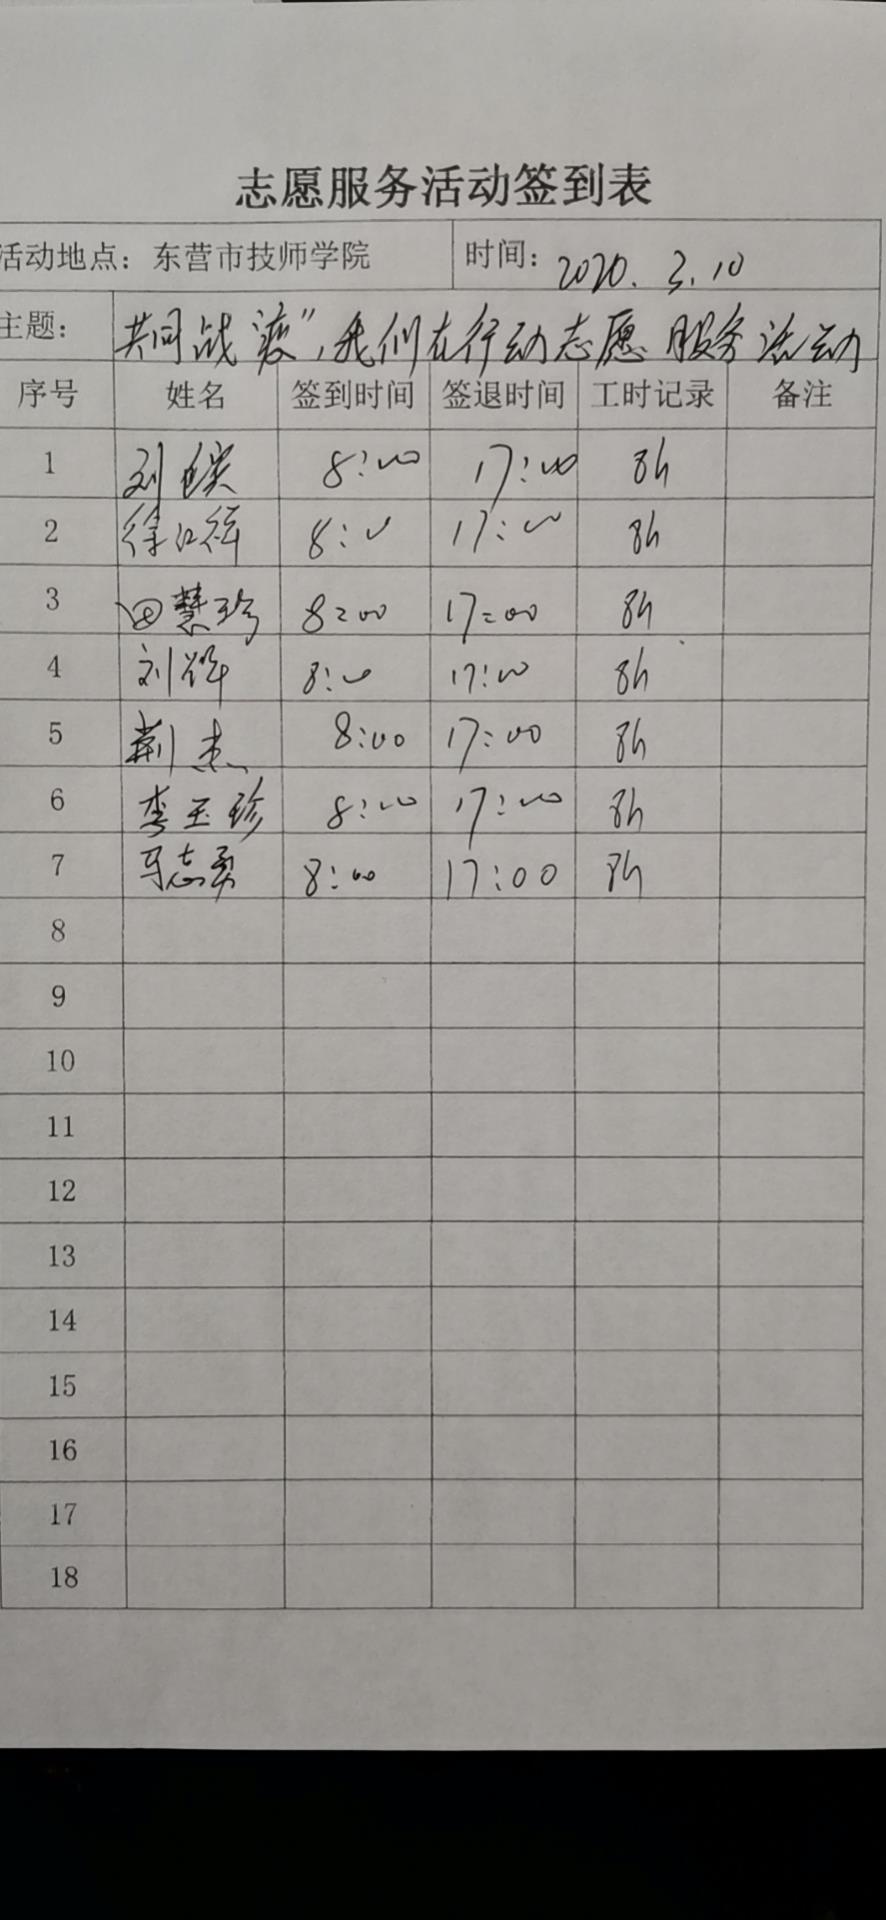 志愿服务活动签到表
活动地点：东营市技师学院 时间：2020.3.10
主题： 共同战"疫"，我们在行动志愿服务活动
序号 姓名 签到时间 签退时间 工时记录 备注
1 刘 8:00 17:00 8h
2 徐江祥 8:00 17:00 8h
3 田慧珍 8:00 17:00 8h
4 刘辉 8:00 17:00 8h
5 荆杰 8:00 17:00 8h
6 李玉珍 8:00 17:00 8h
7 马志勇 8:00 17:00 8h
8
9
10
11
12
13
14
15
16
17
18